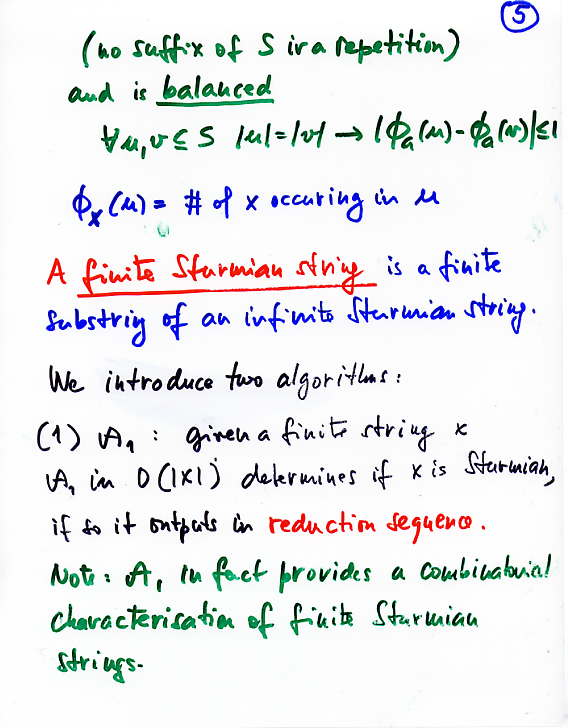 5
(no suffix of S is a repetition)
and is balanced
∀u,v ⊆ S |u|=|v| → |ϕₐ(u)-ϕₐ(v)|≤1
ϕₓ(u) = # of x occuring in u
A finite Sturmian string is a finite
substring of an infinite Sturmian string.
We introduce two algorithms:
(1) A₁ : given a finite string x
A₁ in O(|x|) determines if x is Sturmian,
if so it outputs in reduction sequence.
Note: A₁ in fact provides a combinatorial
characterisation of finite Sturmian
strings.